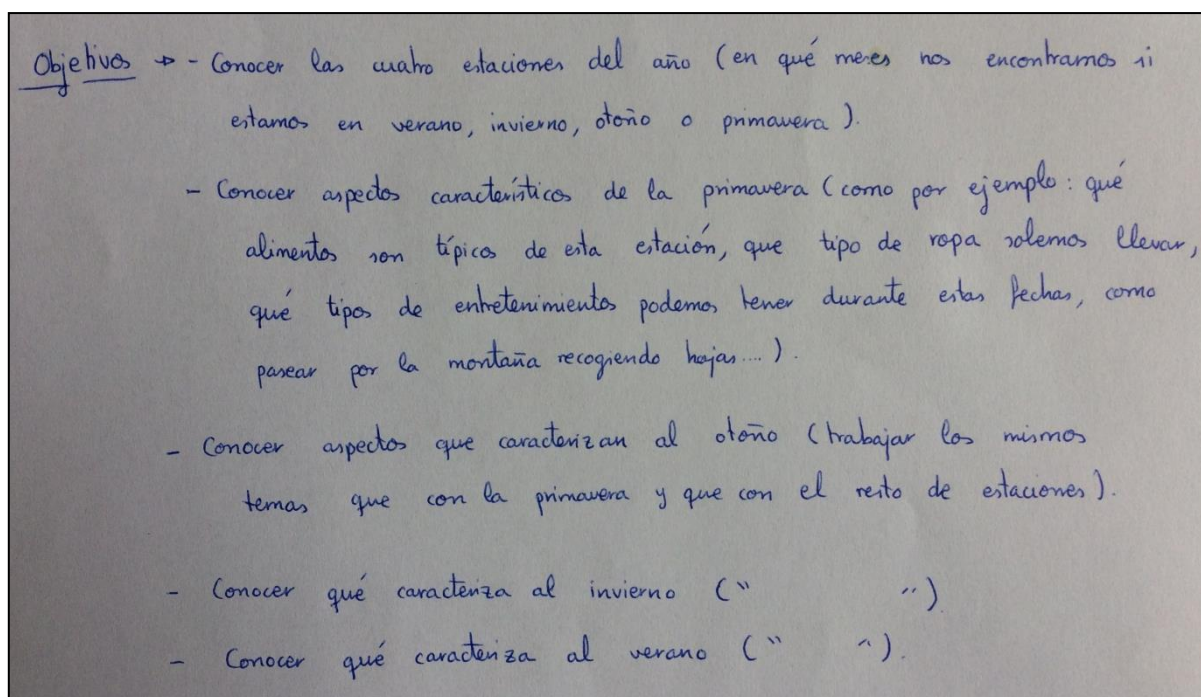 Objetivos → - Conocer las cuatro estaciones del año (en qué meses nos encontramos si
estamos en verano, invierno, otoño o primavera).
- Conocer aspectos característicos de la primavera (como por ejemplo: qué
alimentos son típicos de esta estación, que tipo de ropa solemos llevar,
qué tipos de entretenimientos podemos tener durante estas fechas, como
pasear por la montaña recogiendo hojas....).
- Conocer aspectos que caracterizan al otoño (trabajar los mismos
temas que con la primavera y que con el resto de estaciones).
- Conocer qué caracteriza al invierno (" ")
- Conocer qué caracteriza al verano (" ").